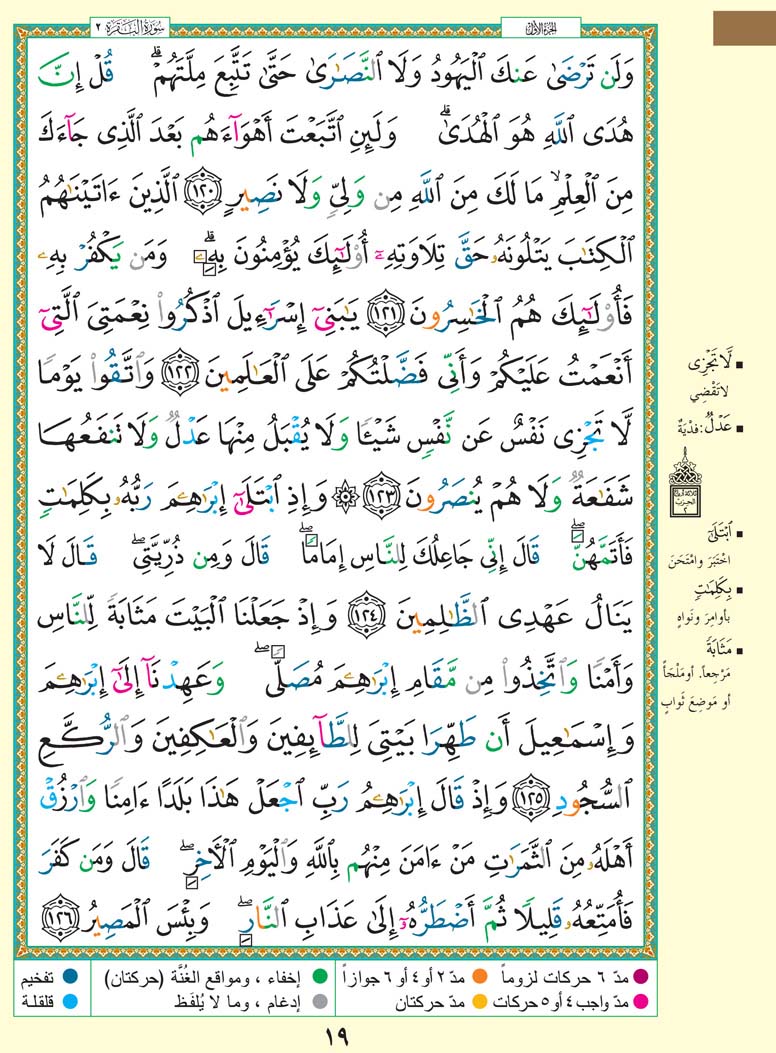 الجزء الأول
سورة البقرة ٢
وَلَن تَرْضَىٰ عَنكَ ٱلْيَهُودُ وَلَا ٱلنَّصَـٰرَىٰ حَتَّىٰ تَتَّبِعَ مِلَّتَهُمْ ۗ قُلْ إِنَّ
هُدَى ٱللَّهِ هُوَ ٱلْهُدَىٰ ۗ وَلَئِنِ ٱتَّبَعْتَ أَهْوَآءَهُم بَعْدَ ٱلَّذِى جَآءَكَ
مِنَ ٱلْعِلْمِ ۙ مَا لَكَ مِنَ ٱللَّهِ مِن وَلِىٍّ وَلَا نَصِيرٍ ١٢٠ ٱلَّذِينَ ءَاتَيْنَـٰهُمُ
ٱلْكِتَـٰبَ يَتْلُونَهُۥ حَقَّ تِلَاوَتِهِۦٓ أُو۟لَـٰٓئِكَ يُؤْمِنُونَ بِهِۦ ۗ وَمَن يَكْفُرْ بِهِۦ
فَأُو۟لَـٰٓئِكَ هُمُ ٱلْخَـٰسِرُونَ ١٢١ يَـٰبَنِىٓ إِسْرَٰٓءِيلَ ٱذْكُرُوا۟ نِعْمَتِىَ ٱلَّتِىٓ
أَنْعَمْتُ عَلَيْكُمْ وَأَنِّى فَضَّلْتُكُمْ عَلَى ٱلْعَـٰلَمِينَ ١٢٢ وَٱتَّقُوا۟ يَوْمًا
لَّا تَجْزِى نَفْسٌ عَن نَّفْسٍ شَيْـًٔا وَلَا يُقْبَلُ مِنْهَا عَدْلٌ وَلَا تَنفَعُهَا
شَفَـٰعَةٌ وَلَا هُمْ يُنصَرُونَ ١٢٣ ۞ وَإِذِ ٱبْتَلَىٰٓ إِبْرَٰهِـۧمَ رَبُّهُۥ بِكَلِمَـٰتٍ
فَأَتَمَّهُنَّ ۖ قَالَ إِنِّى جَاعِلُكَ لِلنَّاسِ إِمَامًا ۖ قَالَ وَمِن ذُرِّيَّتِى ۖ قَالَ لَا
يَنَالُ عَهْدِى ٱلظَّـٰلِمِينَ ١٢٤ وَإِذْ جَعَلْنَا ٱلْبَيْتَ مَثَابَةً لِّلنَّاسِ
وَأَمْنًا وَٱتَّخِذُوا۟ مِن مَّقَامِ إِبْرَٰهِـۧمَ مُصَلًّى ۖ وَعَهِدْنَآ إِلَىٰٓ إِبْرَٰهِـۧمَ
وَإِسْمَـٰعِيلَ أَن طَهِّرَا بَيْتِىَ لِلطَّآئِفِينَ وَٱلْعَـٰكِفِينَ وَٱلرُّكَّعِ
ٱلسُّجُودِ ١٢٥ وَإِذْ قَالَ إِبْرَٰهِـۧمُ رَبِّ ٱجْعَلْ هَـٰذَا بَلَدًا ءَامِنًا وَٱرْزُقْ
أَهْلَهُۥ مِنَ ٱلثَّمَرَٰتِ مَنْ ءَامَنَ مِنْهُم بِٱللَّهِ وَٱلْيَوْمِ ٱلْـَٔاخِرِ ۖ قَالَ وَمَن كَفَرَ
فَأُمَتِّعُهُۥ قَلِيلًا ثُمَّ أَضْطَرُّهُۥٓ إِلَىٰ عَذَابِ ٱلنَّارِ ۖ وَبِئْسَ ٱلْمَصِيرُ ١٢٦
▪ لَّا تَجْزِى
لاتَقْضِي
▪ عَدْلٌ: فِدْيَةٌ
▪ ٱبْتَلَىٰٓ
اخْتَبَرَ وامْتَحَنَ
▪ بِكَلِمَـٰتٍ
بأوامِرَ ونَواهٍ
▪ مَثَابَةً
مَرْجِعاً. أو مَلْجَأً
أو مَوضِعَ ثَوابٍ
مدّ ٦ حركات لزوماً مدّ ٢ أو ٤ أو ٦ جوازاً إخفاء ، ومواقع الغُنَّة (حركتان) تفخيم
مدّ واجب ٤ أو ٥ حركات مدّ حركتان إدغام ، وما لا يُلفَظ قلقلة
١٩